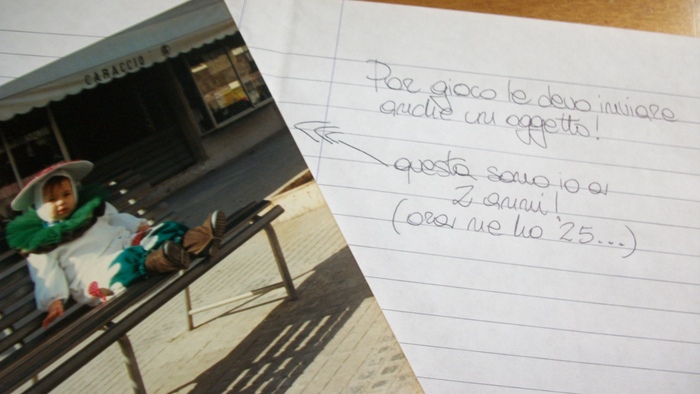 CARACCIO
Per gioco le devo inviare
anche un oggetto!
questa sono io a
2 anni!
(ora ne ho 25...)